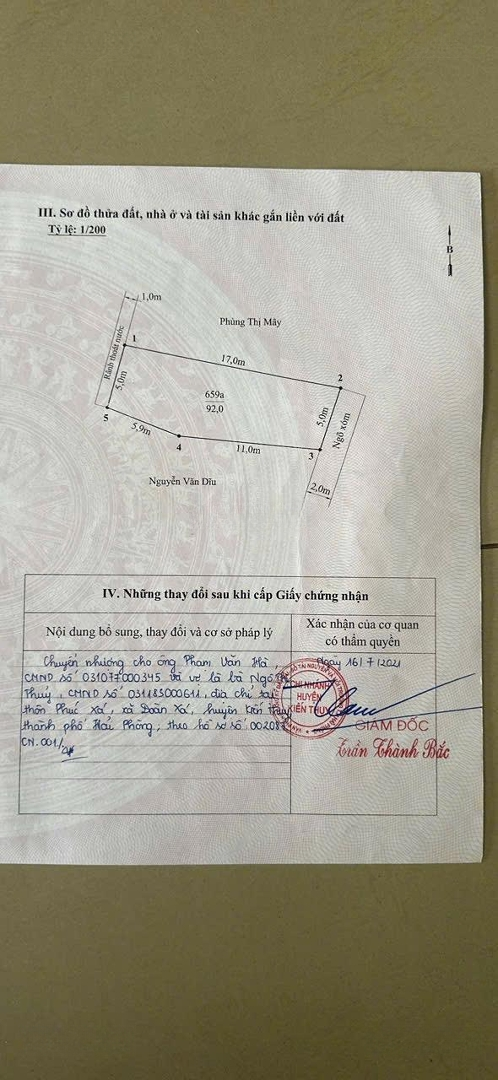 III. Sơ đồ thửa đất, nhà ở và tài sản khác gắn liền với đất
Tỷ lệ: 1/200
B
1,0m
Phùng Thị Mây
Rãnh thoát nước
1
17,0m
2
5,0m
659a
92,0
5,0m
Ngõ xóm
5
5,9m
4
11,0m
3
2,0m
Nguyễn Văn Dĩu
IV. Những thay đổi sau khi cấp Giấy chứng nhận
Nội dung bổ sung, thay đổi và cơ sở pháp lý
Xác nhận của cơ quan
có thẩm quyền
Chuyển nhượng cho ông Phạm Văn Hà,
CMND số 031077000345 và vợ là bà Ngô Thị
Thuỷ, CMND số 031183000611, địa chỉ tại
thôn Phúc Xá, xã Đoàn Xá, huyện Kiến Thuỵ,
thành phố Hải Phòng, theo hồ sơ số 00208
CN.001/
Ngày 16/7/2021
CHI NHÁNH
HUYỆN
KIẾN THUỴ
GIÁM ĐỐC
Trần Thành Bắc